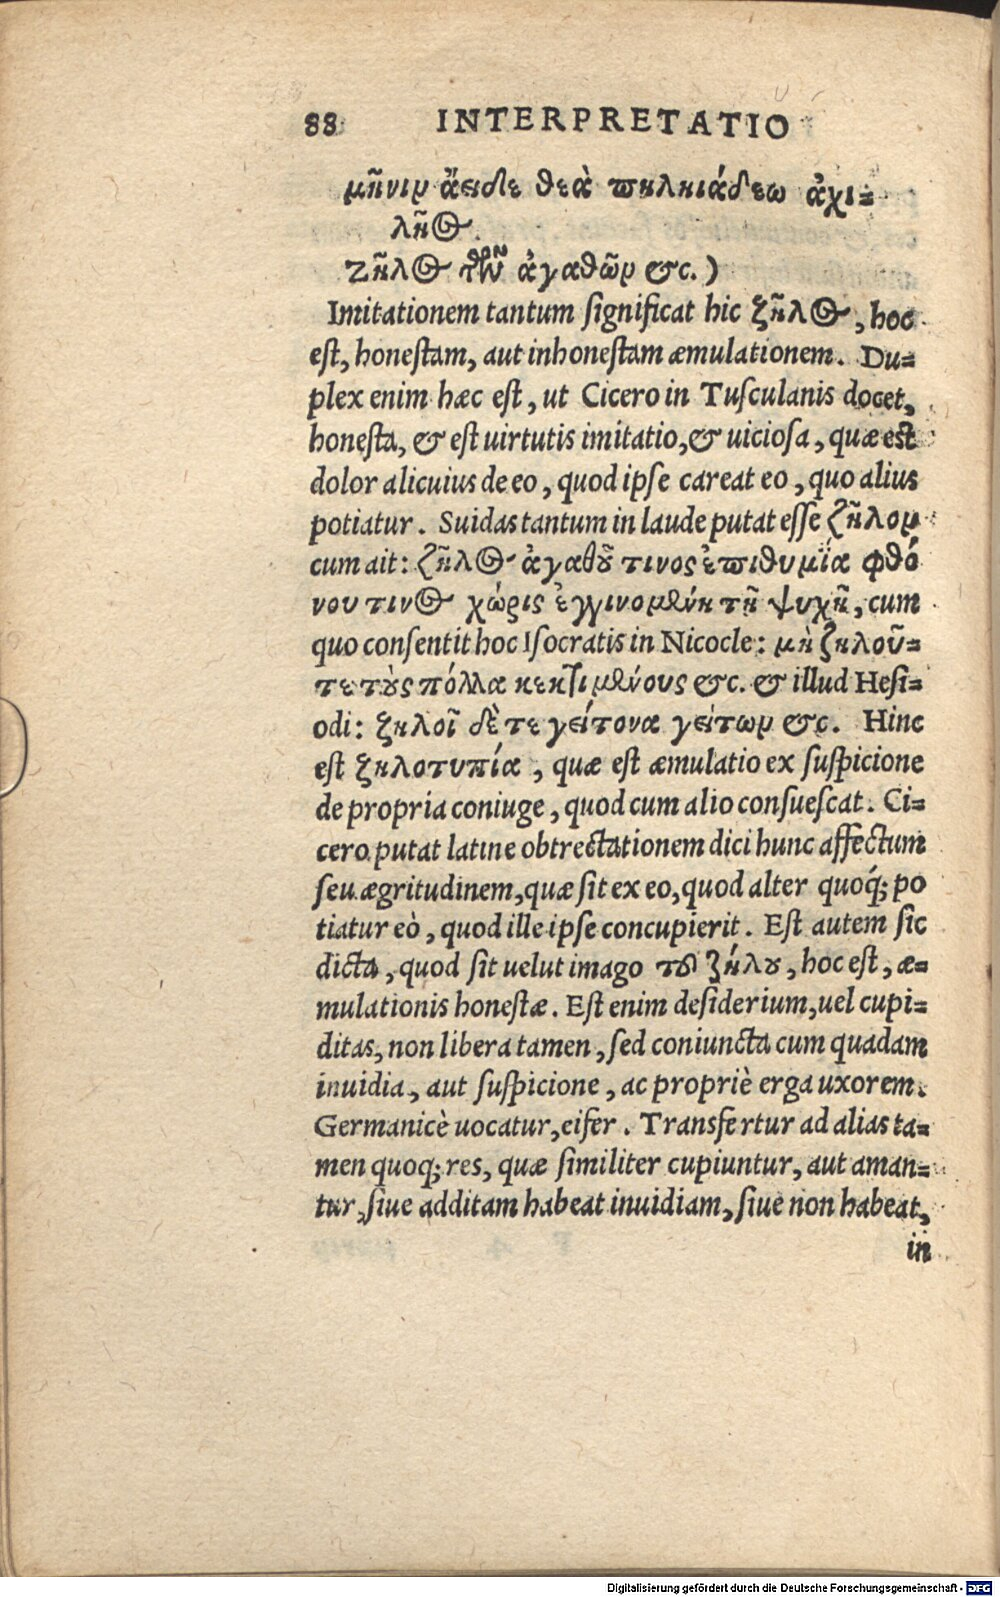 88 INTERPRETATIO
μῆνιν ἄειδε θεὰ πηληιάδεω ἀχι=
λῆος.
Ζῆλος τῶν ἀγαθῶν &c.)
Imitationem tantum ſignificat hic ζῆλος, hoc
eſt, honeſtam, aut inhoneſtam æmulationem. Du=
plex enim hæc eſt, ut Cicero in Tuſculanis docet,
honeſta, & eſt uirtutis imitatio, & uicioſa, quæ eſt
dolor alicuius de eo, quod ipſe careat eo, quo alius
potiatur. Suidas tantum in laude putat eſſe ζῆλον
cum ait: ζῆλος ἀγαθοῦ τινος ἐπιθυμία φθό
νου τινος χώρις ἐγγινομένη τῆ ψυχῆ, cum
quo conſentit hoc Iſocratis in Nicocle: μὴ ζηλοῦ=
τε τοὺς πόλλα κεκτιμένους &c. & illud Heſi=
odi: ζηλοῖ δὲ τε γείτονα γείτων &c. Hinc
eſt ζηλοτυπία, quæ eſt æmulatio ex ſuſpicione
de propria coniuge, quod cum alio conſueſcat. Ci=
cero putat latine obtrectationem dici hunc affectum
ſeu ægritudinem, quæ ſit ex eo, quod alter quoq; po
tiatur eò, quod ille ipſe concupierit. Eſt autem ſic
dicta, quod ſit uelut imago τοῦ ζήλου, hoc eſt, æ=
mulationis honeſtæ. Eſt enim deſiderium, uel cupi=
ditas, non libera tamen, ſed coniuncta cum quadam
inuidia, aut ſuſpicione, ac propriè erga uxorem.
Germanicè uocatur, eifer. Transfertur ad alias ta=
men quoq; res, quæ ſimiliter cupiuntur, aut aman=
tur, ſiue additam habeat inuidiam, ſiue non habeat,
in
Digitalisierung gefördert durch die Deutsche Forschungsgemeinschaft - DFG